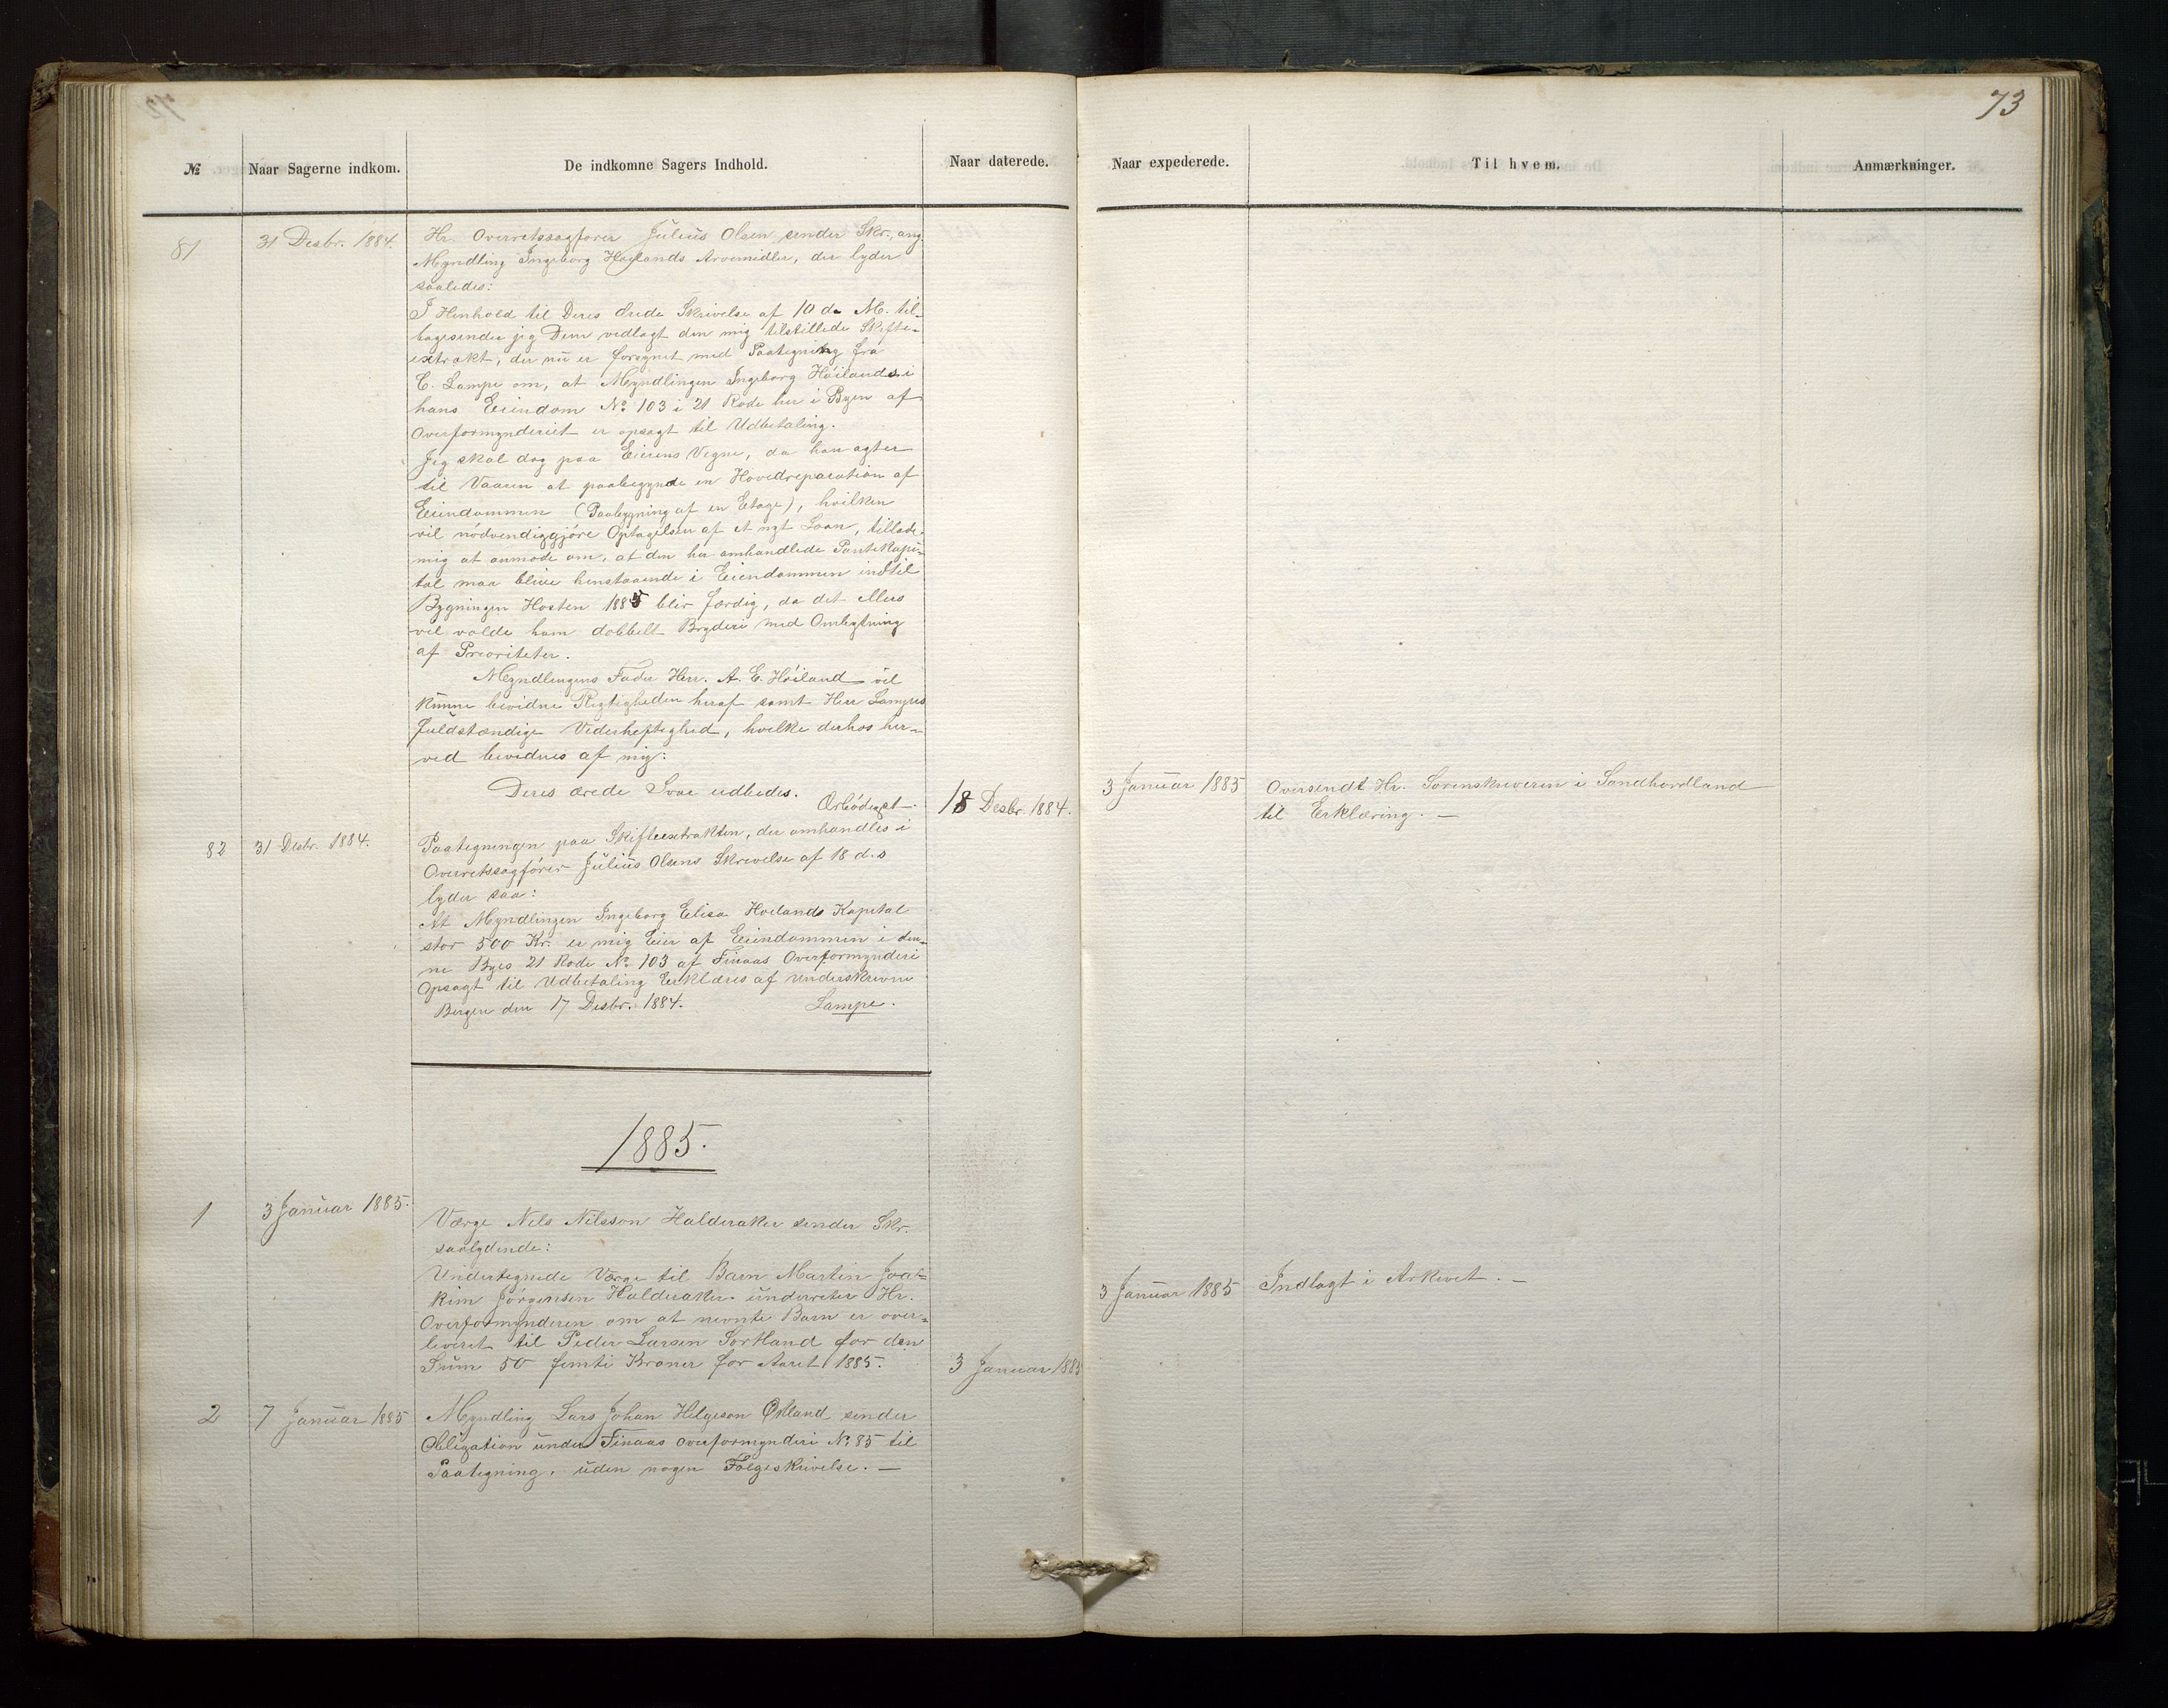 73
№ Naar Sagerne indkom. De indkomne Sagers Indhold. Naar daterede. Naar expederede. Til hvem. Anmærkninger.
81 31 Desbr. 1884. Hr. Overretssagfører Julius Olsen sender Skr., ang.
Myndling Ingeborg Høylands Arvemidler, der lyder
saaledes:
I Henhold til Deres ærede Skrivelse af 10 da M. til-
bagesender jeg Dem vedlagt den mig tilstillede Skifte-
extrakt, der nu er forsynet med Paategning fra
C. Lampe om, at Myndlingen Ingeborg Høilands i
hans Eiendom No. 103 i 21 Rode her i Byen af
Overformynderiet er opsagt til Udbetaling.
Jeg skal dog paa Eierens Vegne, da han agter
til Vaaren at paabegynde en Hovedreparation af
Eiendommen (Paabygning af en Etage), hvilken
vil nödvendiggjöre Optagelsen af et nyt Laan, tillade
mig at anmode om, at den her omhandlede Pantekapi-
tal maa blive henstaaende i Eiendommen indtil
Bygningen Hosten 1885 blir færdig, da det ellers
vil volde ham dobbelt Bryderi med Ombytning
af Prioriteter.
Myndlingens Fader Herr. A. E. Höiland vil
kunne bevidne Rigtigheden heraf samt Herr Lampes
fuldstændige Vederheftighed, hvilke derhos her-
ved bevidnes af mig:
Deres ærede Svar udbedes.
Ærbödigst. 18 Desbr. 1884. 3 Januar 1885 Oversendt Hr. Sorenskriveren i Sandhordland
til Erklæring. —
82 31 Desbr. 1884. Paategningen paa Skifteextrakten, der omhandles i
Overretssagförer Julius Olsens Skrivelse af 18 d.s
lyder saa:
At Myndlingen Ingeborg Elisa Hoilands Kapital
stor 500 Kr. er mig Eier af Eiendommen i den-
ne Byes 21 Rode No. 103 af Finaas Overformynderi
Opsagt til Udbetaling Erklæres af Underskrevne
Bergen den 17 Desbr. 1884. Lampe.
1885.
1 3 Januar 1885. Værge Nels Nilsson Halderaker sender Skr.
saalydende:
Undertegnede Værge til Barn Martin Joa-
kim Jörgensen Halderaker underreter Hr.
Overformynderen om at nevnte Barn er over-
leveret til Peder Larsen Sortland for den
Sum 50 femti Kroner for Aaret 1885. 3 Januar 1885 3 Januar 1885 Indlagt i Arkivet. —
2 7 Januar 1885 Myndling Lars Johan Helgeson Økland sender
Obligation under Finaas overformynderi No. 85 til
Paategning, uden nogen Følgeskrivelse. —